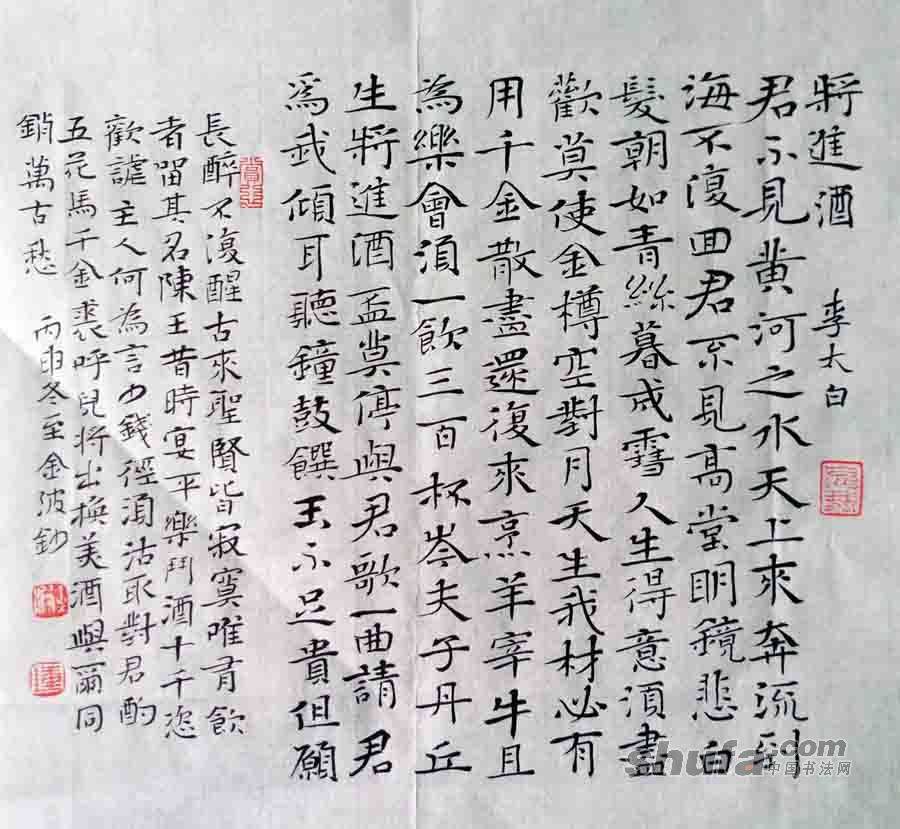 將進酒 李太白
君不見黄河之水天上來奔流到
海不復回君不見高堂明鏡悲白
髮朝如青絲暮成雪人生得意須盡
歡莫使金樽空對月天生我材必有
用千金散盡還復來烹羊宰牛且
為樂會須一飲三百杯岑夫子丹丘
生將進酒盃莫停與君歌一曲請君
爲我傾耳聽鐘鼓饌玉不足貴但願
長醉不復醒古來聖賢皆寂寞唯有飲
者留其名陳王昔時宴平樂鬥酒十千恣
歡謔主人何為言少錢徑須沽取對君酌
五花馬千金裘呼兒將出換美酒與爾同
銷萬古愁 丙申冬至金波鈔
shufa.com
中国书法网